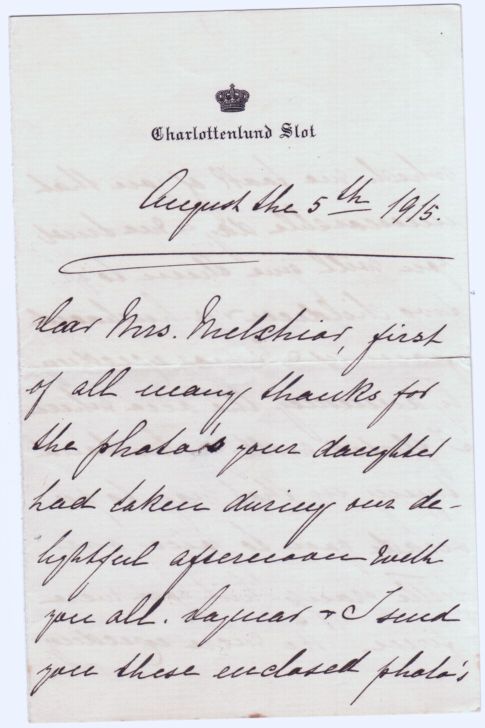 Charlottenlund Slot
August the 5th 1915.
Dear Mrs. Melchior, first
of all many thanks for
the photo's your daughter
had taken during our de-
lightful afternoon with
you all. Dagmar & I send
you these enclosed photo's